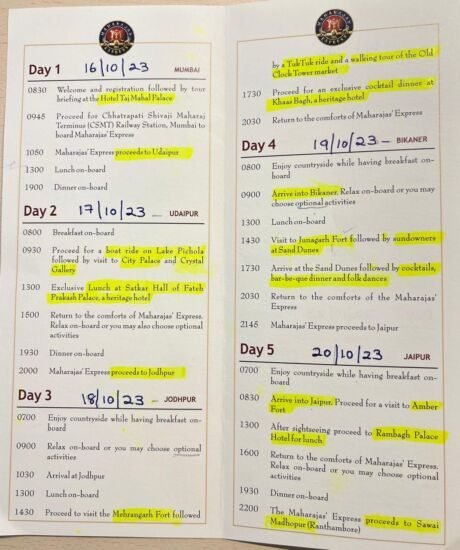 MAHARAJAS'
EXPRESS
Day 1 16/10/23 MUMBAI
0830 Welcome and registration followed by tour
briefing at the Hotel Taj Mahal Palace
0945 Proceed for Chhatrapati Shivaji Maharaj
Terminus (CSMT) Railway Station, Mumbai to
board Maharajas' Express
1050 Maharajas' Express proceeds to Udaipur
1300 Lunch on-board
1900 Dinner on-board
Day 2 17/10/23 – UDAIPUR
0800 Breakfast on-board
0930 Proceed for a boat ride on Lake Pichola
followed by visit to City Palace and Crystal
Gallery
1300 Exclusive Lunch at Satkar Hall of Fateh
Prakash Palace, a heritage hotel
1500 Return to the comforts of Maharajas' Express.
Relax on-board or you may also choose optional
activities
1930 Dinner on-board
2000 Maharajas' Express proceeds to Jodhpur
Day 3 18/10/23 – JODHPUR
0700 Enjoy countryside while having breakfast on-
board
0900 Relax on-board or you may choose optional
activities
1030 Arrival at Jodhpur
1300 Lunch on-board
1430 Proceed to visit the Mehrangarh Fort followed
MAHARAJAS'
EXPRESS
by a TukTuk ride and a walking tour of the Old
Clock Tower market
1730 Proceed for an exclusive cocktail dinner at
Khaas Bagh, a heritage hotel
2030 Return to the comforts of Maharajas' Express
Day 4 19/10/23 – BIKANER
0800 Enjoy countryside while having breakfast on-
board
0900 Arrive into Bikaner. Relax on-board or you may
choose optional activities
1300 Lunch on-board
1430 Visit to Junagarh Fort followed by sundowners
at Sand Dunes
1730 Arrive at the Sand Dunes followed by cocktails,
bar-be-que dinner and folk dances
2030 Return to the comforts of the Maharajas'
Express
2145 Maharajas' Express proceeds to Jaipur
Day 5 20/10/23 JAIPUR
0700 Enjoy countryside while having breakfast on-
board
0830 Arrive into Jaipur. Proceed for a visit to Amber
Fort
1300 After sightseeing proceed to Rambagh Palace
Hotel for lunch
1600 Return to the comforts of Maharajas' Express.
Relax on-board or you may choose optional
activities
1930 Dinner on-board
2200 The Maharajas' Express proceeds to Sawai
Madhopur (Ranthambore)